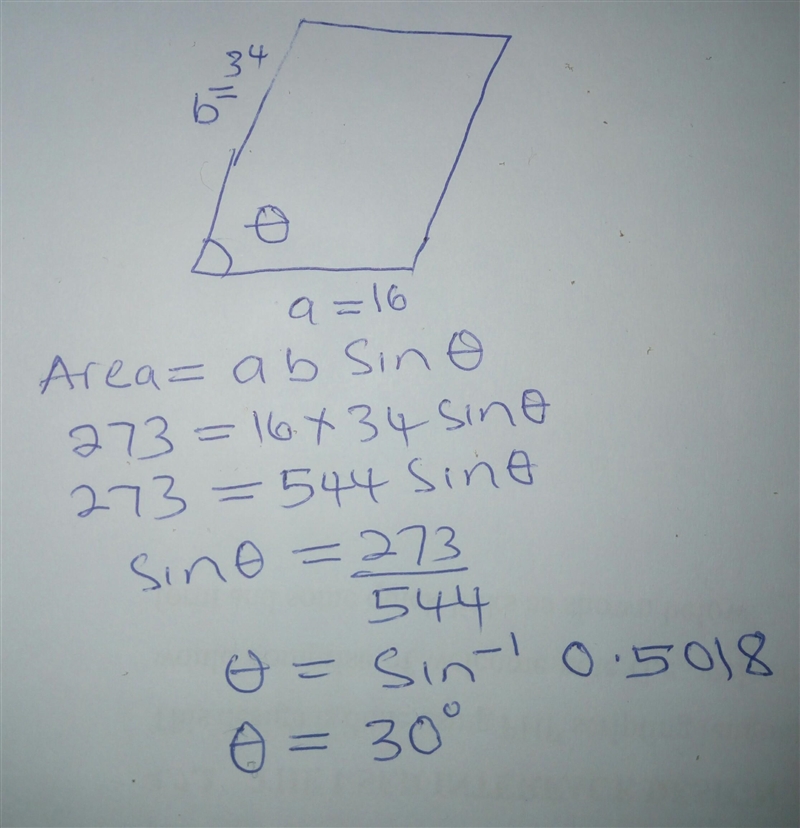 b=34
θ
a=16
Area= ab Sinθ
273 =16×34 sinθ
273 = 544 Sinθ
sinθ = 273/544
θ = Sin⁻¹ 0.5018
θ = 30°